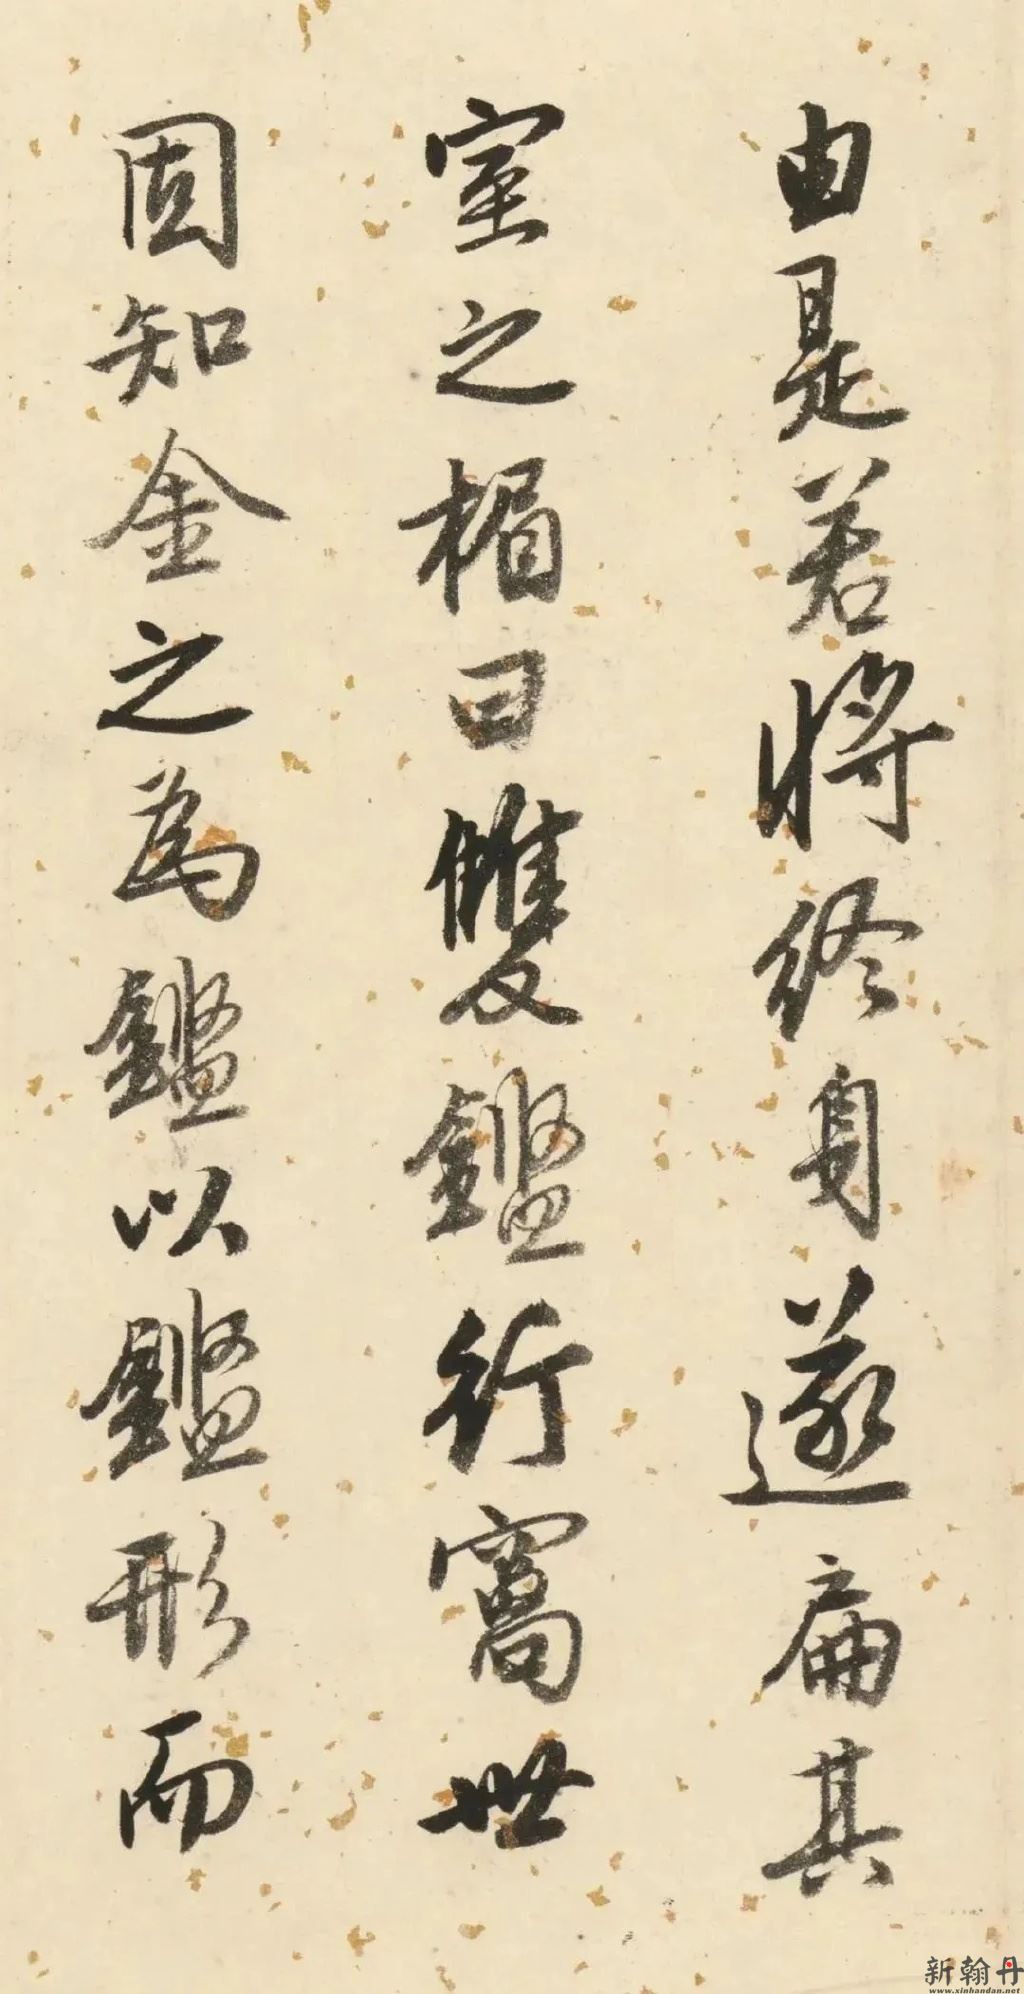 由是若將終身遂扁其
室之楣曰雙鑑行窩世
固知金之為鑑以鑑形而
新翰丹
www.xinhandan.net